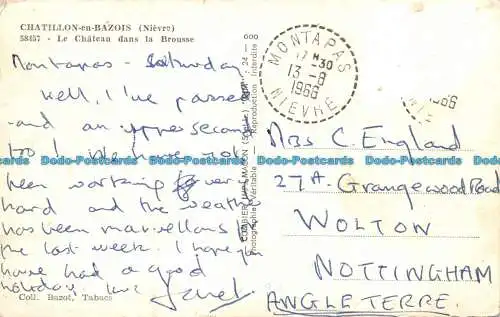 CHATILLON-en-BAZOIS (Nièvre)
58457 - Le Château dans la Brousse
Montapas - Saturday
Well, I've passed
- and an upper second
too I
been working very
hard and the weather
has been marvellous for
the last week. I hope you
have had a good
holiday, love
Janet.
Coll. Bazot, Tabacs
Photographie Véritable - Reproduction Interdite
MONTAPAS
17 H 30
13 - 8
1966
NIEVRE
1966
Miss C. England
27A. Grangewood Road
WOLTON
NOTTINGHAM
ANGLETERRE.
Dodo-Postcards Dodo-Postcards Dodo-Postcards Dodo-Postcards